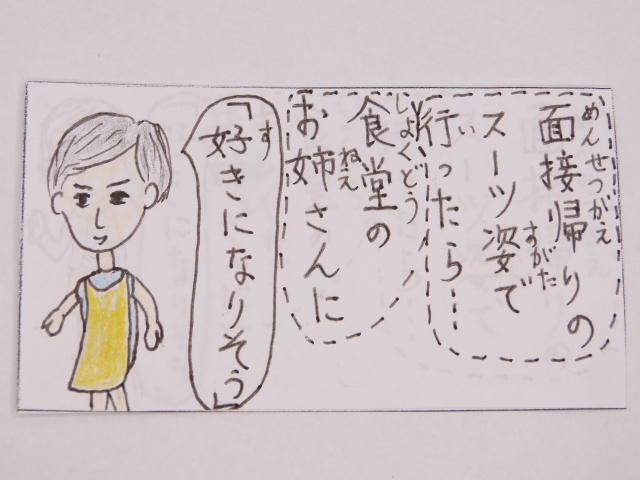 面接帰りの
めんせつがえ
スーツ姿で
すがた
行ったら…
い
食堂の
しょくどう
お姉さんに
ねえ
「好きになりそう」
す